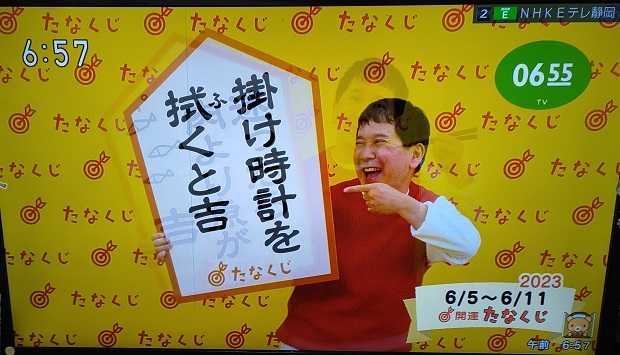 6:57
2 E NHKEテレ静岡
0655
TV
掛け時計を
拭くと吉
ふ
たなくじ
たなくじ
たなくじ
たなくじ
たなくじ
たなくじ
たなくじ
2023
6/5～6/11
開運 たなくじ
午前 6:57